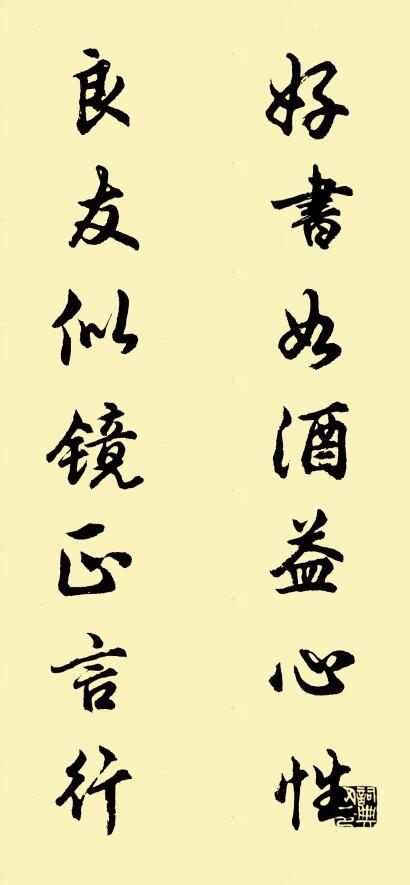 好書如酒益心性
良友似镜正言行